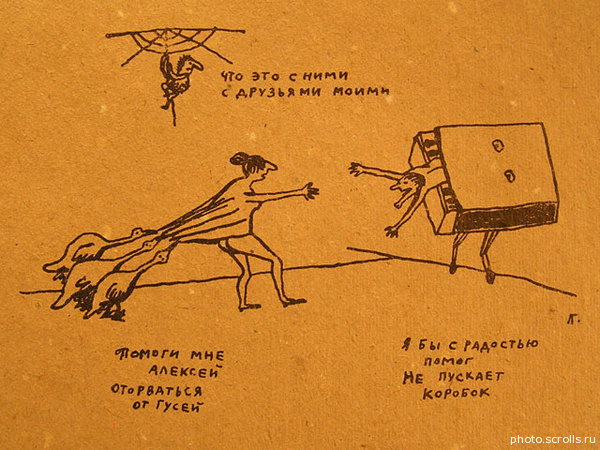 что это с ними
с друзьями моими
Помоги мне
Алексей
оторваться
от гусей
Я бы с радостью
помог
Не пускает
коробок
Л.
photo.scrolls.ru